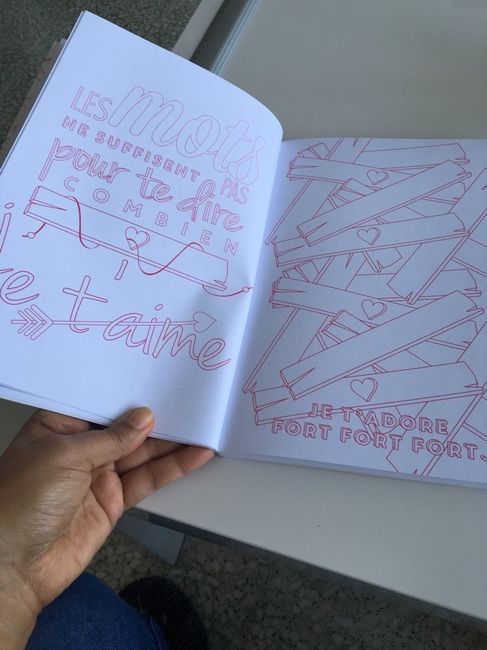 LES mots
NE SUFFISENT PAS
pour te dire
COMBIEN
je t'aime
JE T'ADORE
FORT FORT FORT.